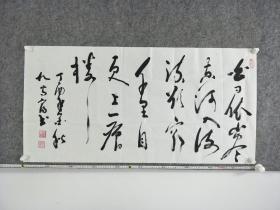 白日依山尽
黄河入海
流欲窮
千里目
更上一層
樓
丁酉
秋
书